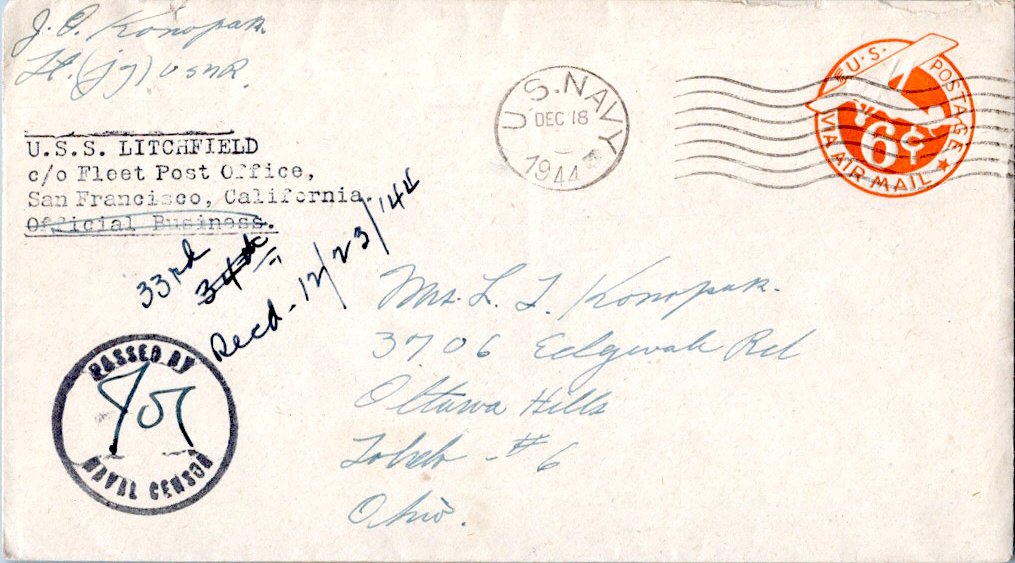 J. O. Konopak.
Lt. (jg) USNR.
U.S.S. LITCHFIELD
c/o Fleet Post Office,
San Francisco, California.
Official Business.
U.S. NAVY
DEC 18
1944
U.S. POSTAGE
6¢
VIA AIR MAIL
33rd
34th
Recd. 12/23/44
Mrs. L. T. Konopak.
3706 Edgevale Rd
Ottawa Hills
Toledo - #6
Ohio.
PASSED BY
NAVAL CENSOR